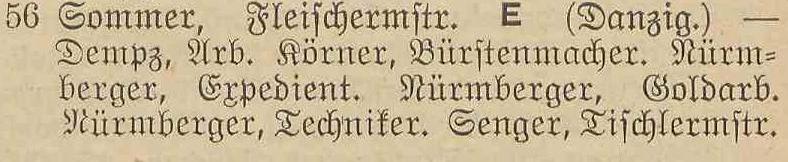 56 Sommer, Fleischermstr. E (Danzig.) —
Dempz, Arb. Körner, Bürstenmacher. Nürm-
berger, Expedient. Nürmberger, Goldarb.
Nürmberger, Techniker. Senger, Tischlermstr.